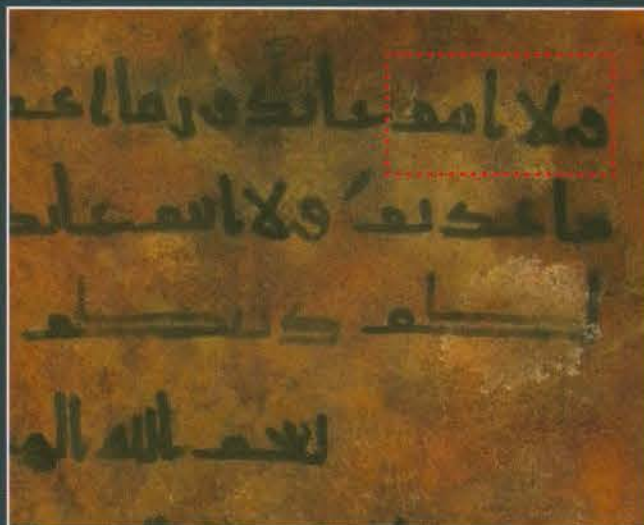 ولا انتم عابدون ما اعب
ما عبدتم ولا انتم عابد
لكم دينكم
بسم الله الر